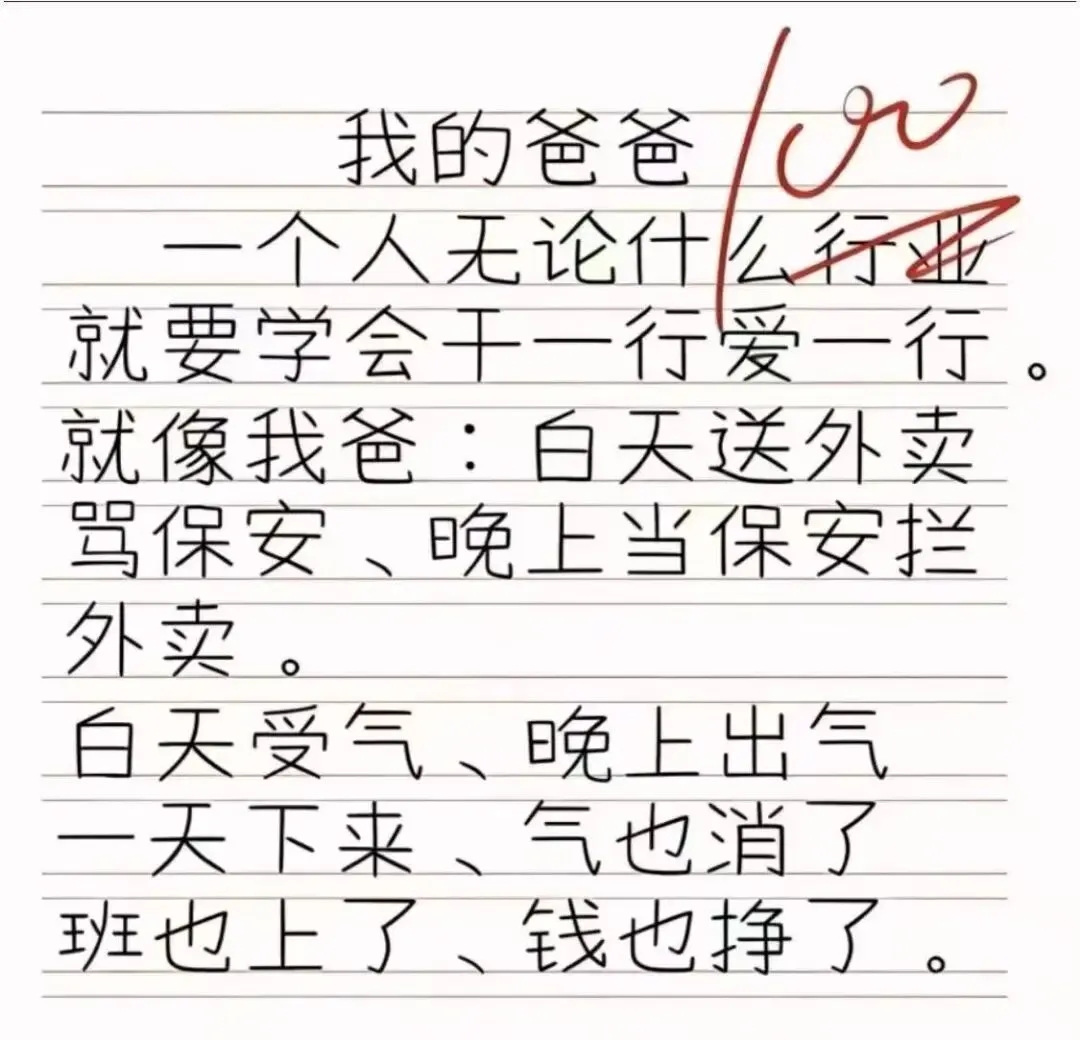 我的爸爸
100
一个人无论什么行业
就要学会干一行爱一行。
就像我爸：白天送外卖
骂保安、晚上当保安拦
外卖。
白天受气、晚上出气
一天下来、气也消了
班也上了、钱也挣了。